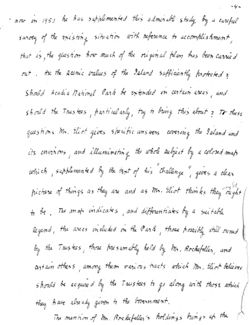 -4-
now in 1951 he has supplemented this admirable study by a careful
survey of the existing situation with reference to accomplishment,
that is, the question how much of the original plan has been carried
out. Are the scenic values of the Island sufficiently protected?
Should Acadia National Park be extended in certain areas, and
should the Trustees, particularly, try to bring this about? To these
questions Mr. Eliot gives specific answers covering the Island and
its environs, and illuminating the whole subject by a colored map
which, supplemented by the text of his "Challenge", gives a clear
picture of things as they are and as Mr. Eliot thinks they ought
to be. The map indicates, and differentiates by a suitable
legend, the areas included in the Park, those possibly still owned
by the Trustees, those presumably held by Mr. Rockefeller, and
certain others, among them various tracts which Mr. Eliot believes
should be acquired by the Trustees to go along with those which
they have already given to the Government.
The mention of Mr. Rockefeller's holdings brings up the